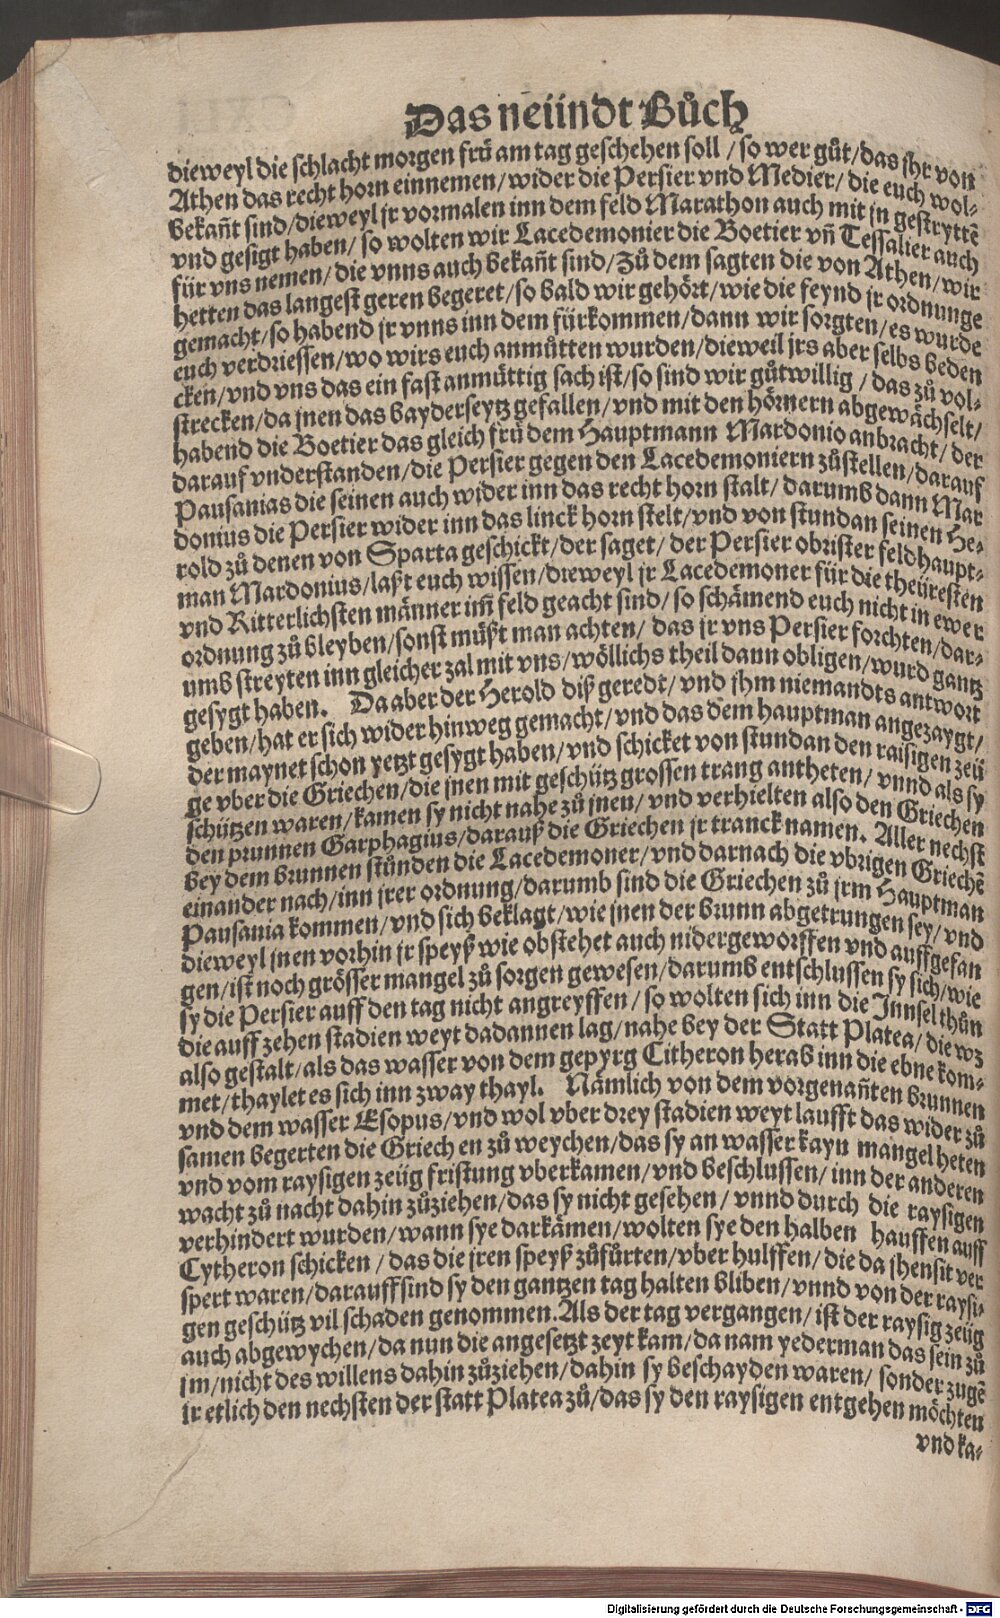 Das neündt Bůch
dieweyl die schlacht morgen frü am tag geschehen soll / so wer gůt / das jhr von
Athen das recht horn einnemen / wider die Persier vnd Medier / die euch wol⸗
bekañt sind / dieweyl jr vormalen inn dem feld Marathon auch mit jn gestryttẽ
vnd gesigt haben / so wolten wir Lacedemonier die Boetier vñ Tessalier auch
für vns nemen / die vnns auch bekañt sind / Zů dem sagten die von Athen / wir
hetten das langest geren begeret / so bald wir gehört / wie die feynd jr ordnunge
gemacht / so habend jr vnns inn dem fürkommen / dann wir sorgten / es wurde
euch verdriessen / wo wirs euch anmůtten wurden / dieweil jrs aber selbs beden
cken / vnd vns das ein fast anmüttig sach ist / so sind wir gůtwillig / das zů vol⸗
strecken / da jnen das bayderseytz gefallen / vnd mit den hörnern abgewächselt /
habend die Boetier das gleich frü dem Hauptmann Mardonio anbracht / der
darauf vnderstanden / die Persier gegen den Lacedemoniern zůstellen / darauf
Pausanias die seinen auch wider inn das recht horn stalt / darumb dann Mar
donius die Persier wider inn das linck horn stelt / vnd von stundan seinen He⸗
rold zů denen von Sparta geschickt / der saget / der Persier obrister feldhaupt⸗
man Mardonius / laßt euch wissen / dieweyl jr Lacedemoner für die theüresten
vnd Ritterlichsten männer im̃ feld geacht sind / so schämend euch nicht in ewer
ordnung zů bleyben / sonst müßt man achten / das jr vns Persier forchten / dar⸗
umb streyten inn gleicher zal mit vns / wöllichs theil dann obligen / wurd gantz
gesygt haben. Da aber der Herold diß geredt / vnd jhm niemandts antwort
geben / hat er sich wider hinweg gemacht / vnd das dem hauptman angezaygt /
der maynet schon yetzt gesygt haben / vnd schicket von stundan den raisigen zeü
ge vber die Griechen / die jnen mit geschütz grossen trang antheten / vnnd als sy
schützen waren / kamen sy nicht nahe zů jnen / vnd verhielten also den Griechen
den prunnen Garphagius / darauß die Griechen jr tranck namen. Aller nechst
bey dem brunnen stůnden die Lacedemoner / vnd darnach die vbrigen Griechẽ
einander nach / inn jrer ordnung / darumb sind die Griechen zů jrm Hauptman
Pausania kommen / vnd sich beklagt / wie jnen der brunn abgetrungen sey / vnd
dieweyl jnen vorhin jr speyß wie obstehet auch nidergeworffen vnd auffgefan
gen / ist noch grösser mangel zů sorgen gewesen / darumb entschlussen sy sich / wie
sy die Persier auff den tag nicht angreyffen / so wolten sich inn die Jnnsel thůn
die auff zehen stadien weyt dadannen lag / nahe bey der Statt Platea / die wz
also gestalt / als das wasser von dem gepyrg Citheron herab inn die ebne kom⸗
met / thaylet es sich inn zway thayl. Nämlich von dem vorgenañten brunnen
vnd dem wasser Esopus / vnd wol vber drey stadien weyt laufft das wider zů
samen begerten die Griech en zů weychen / das sy an wasser kayn mangel heten
vnd vom raysigen zeüg fristung vberkamen / vnd beschlussen / inn der anderen
wacht zů nacht dahin zůziehen / das sy nicht gesehen / vnnd durch die raysigen
verhindert wurden / wann sye darkämen / wolten sye den halben hauffen auff
Cytheron schicken / das die jren speyß zůfürten / vber hulffen / die da jhensit ver
spert waren / darauff sind sy den gantzen tag halten bliben / vnnd von der raysi⸗
gen geschütz vil schaden genommen. Als der tag vergangen / ist der raysig zeüg
auch abgewychen / da nun die angesetzt zeyt kam / da nam yederman das sein zů
jm / nicht des willens dahin zůziehen / dahin sy beschayden waren / sonder zugẽ
jr etlich den nechsten der statt Platea zů / das sy den raysigen entgehen möchten
vnd ka⸗
Digitalisierung gefördert durch die Deutsche Forschungsgemeinschaft - DFG